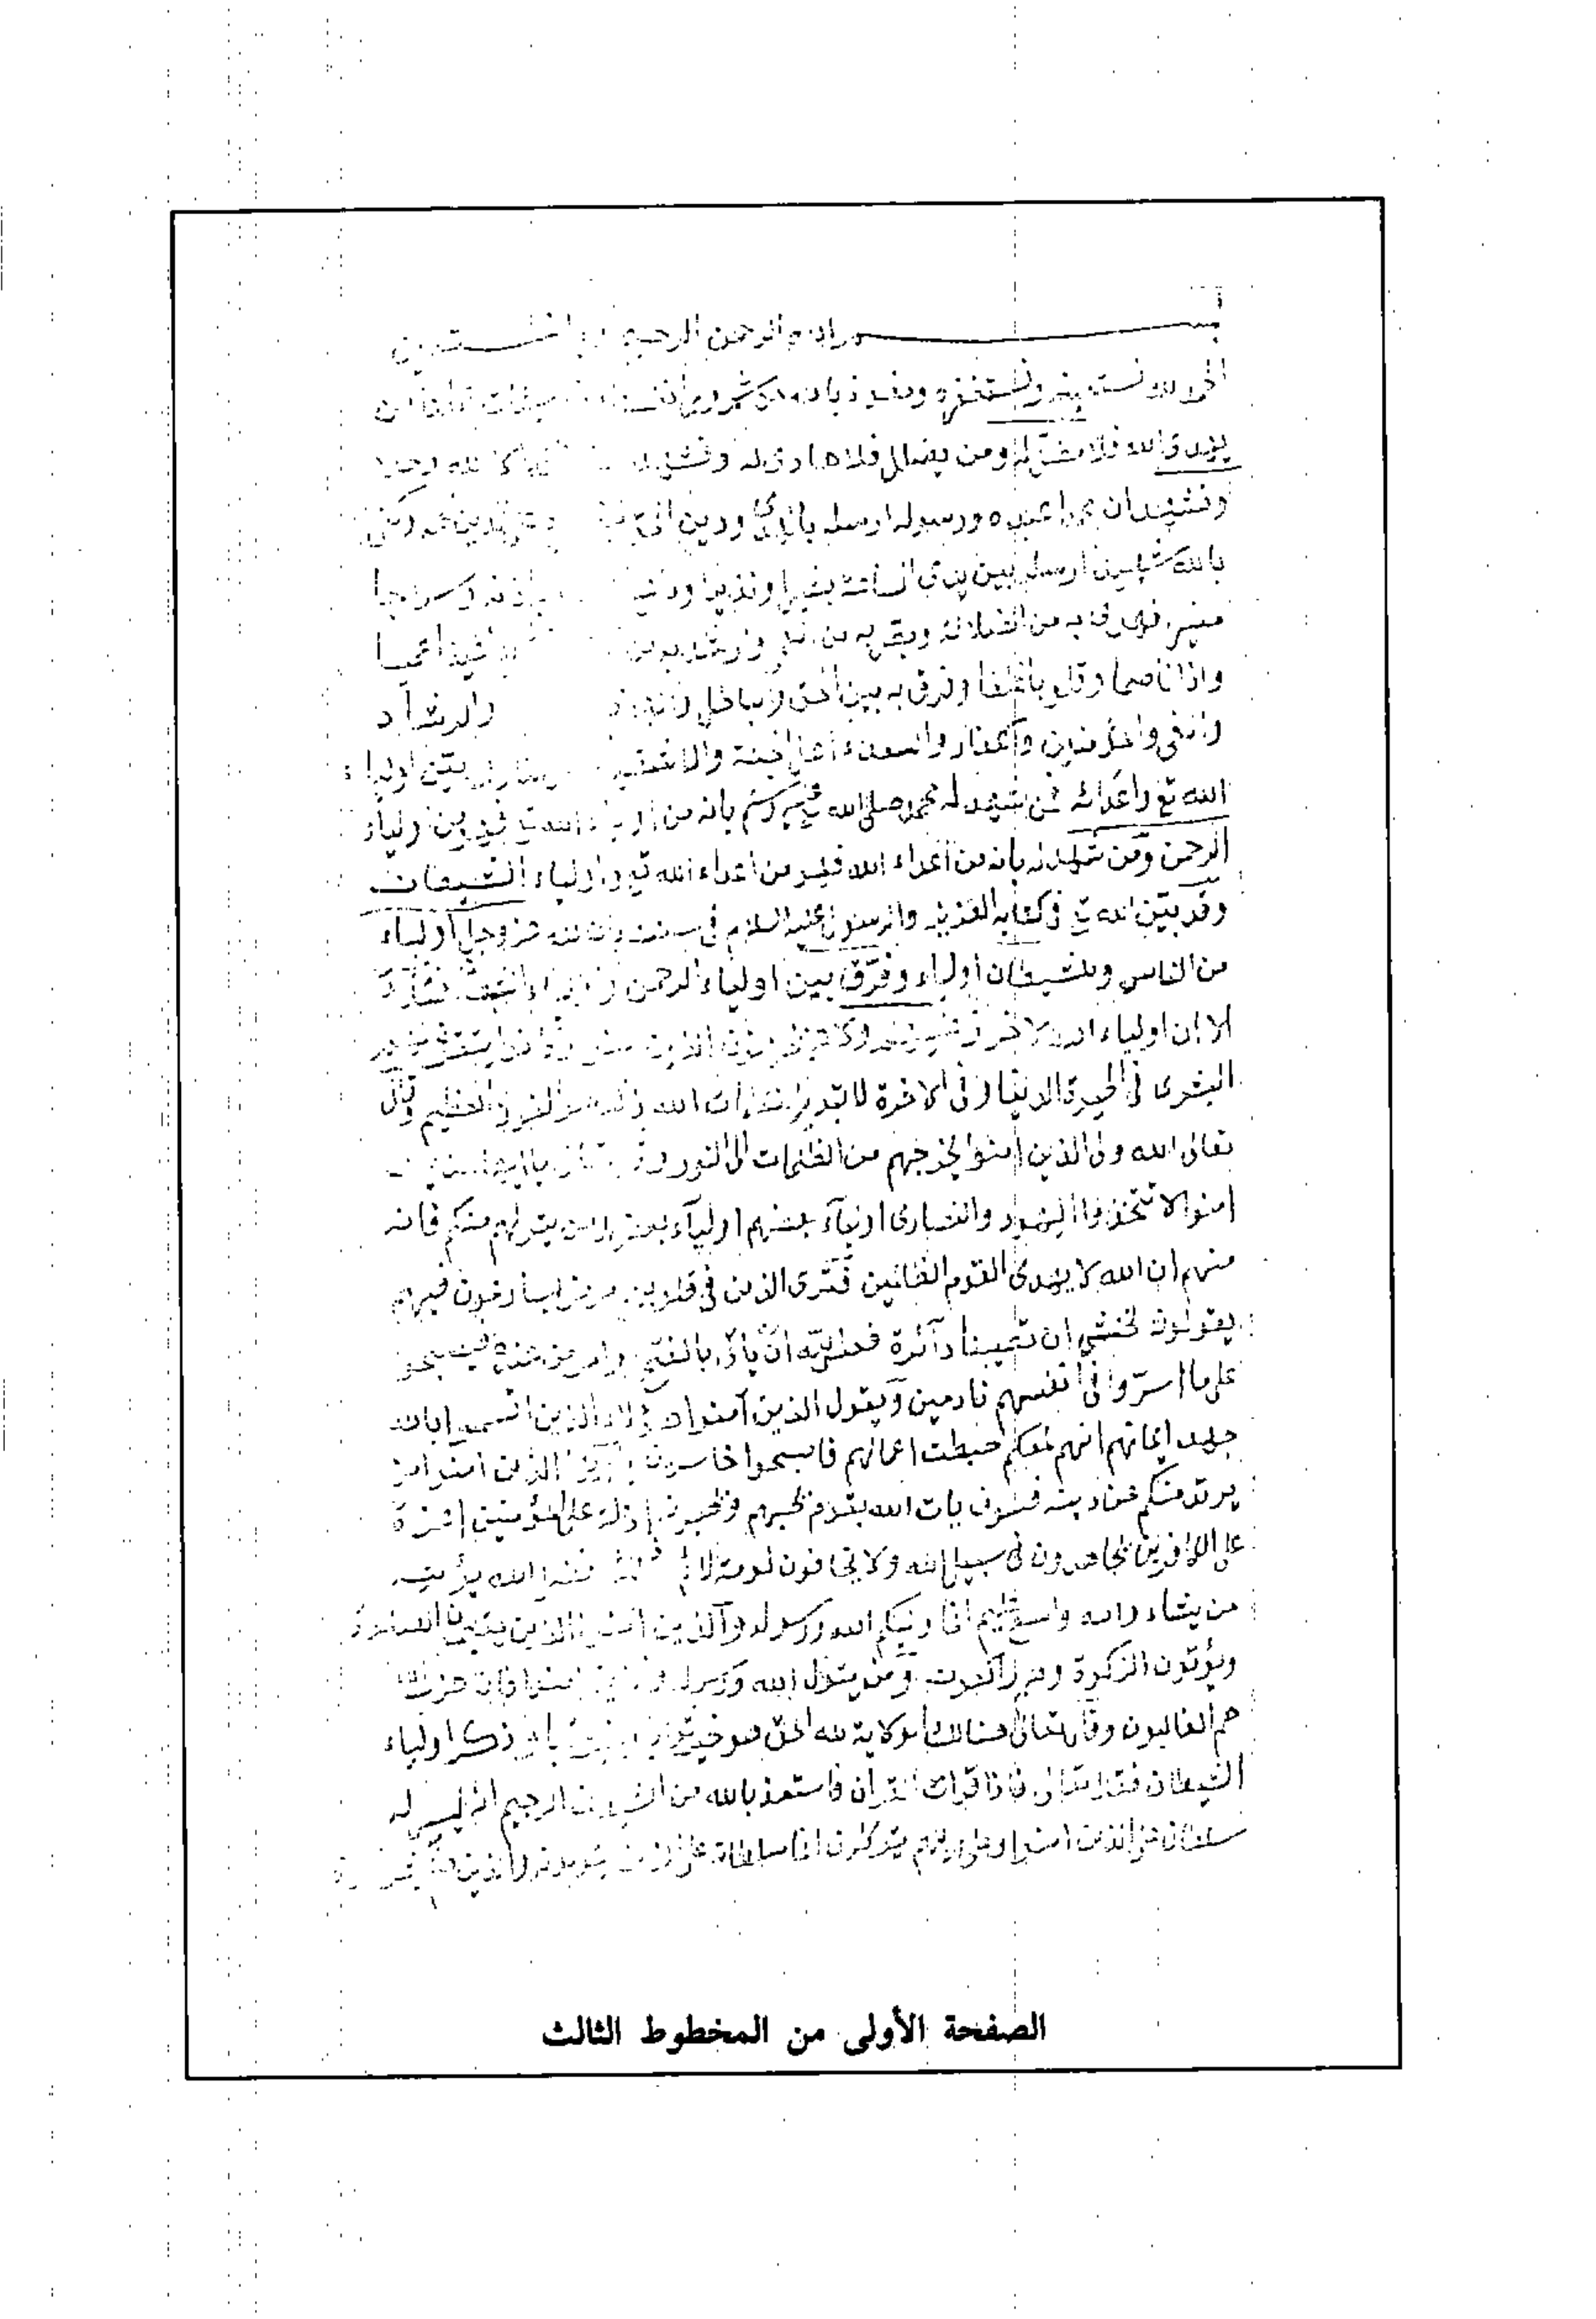 بسم الله الرحمن الرحيم
الحمد لله نستعينه ونستغفره ونعوذ بالله من شرور أنفسنا سيئات
يهدى الله فلا مضل له ومن يضلل فلا هادى له ونشهد
ونشهد ان محمدا عبده ورسوله ارسله بالهدى ودين الحق
بالله شهيدا ارسله بين يدى الساعة بشيرا ونذيرا باذنه وسراجا
منيرا فهدى به من الضلالة وبصر به من اعميا
واذانا صما وقلوبا غلفا وفرق به بين الحق والباطل والرشاد
والغى والمؤمنين والكفار والسعداء اهل الجنة والاشقياء اولياء
الله تع واعدائه فمن شهد له محمد صلى الله عليه وسلم بانه من اولياء الله فهو من اولياء
الرحمن ومن شهد له بانه من أعداء الله فهو من اعداء الله تع واولياء الشيطان
وقد بين الله تع فى كتابه العزيز والرسول عليه السلام فى سنته ان لله عز وجل أولياء
من الناس وللشيطان اولياء وفرق بين اولياء الرحمن
الا ان اولياء الله لا خوف عليهم ولا هم يحزنون الذين
البشرى فى الحيوة الدنيا وفى الاخرة لا تبديل لكلمات الله ذلك هو الفوز العظيم وقال
تعالى الله ولى الذين امنوا يخرجهم من الظلمات الى النور
امنوا لا تتخذوا اليهود والنصارى اولياء بعضهم اولياء بعض ومن يتولهم منكم فانه
منهم ان الله لا يهدى القوم الظالمين فترى الذين فى قلوبهم مرض يسارعون فيهم
يقولون نخشى ان تصيبنا دآئرة فعسى الله ان يأتى بالفتح او امر من عنده فيصبحوا
على ما اسروا فى أنفسهم نادمين ويقول الذين آمنوا اهؤلاء الذين اقسموا بالله
جهد ايمانهم انهم لمعكم حبطت اعمالهم فاصبحوا خاسرين الذين امنوا من
يرتد منكم عن دينه فسوف يأت الله بقوم يحبهم ويحبونه اذلة على المؤمنين اعزة
على الكافرين يجاهدون فى سبيل الله ولا يخافون لومة لائم ذلك فضل الله يؤتيه
من يشاء والله واسع عليم انما وليكم الله ورسوله والذين امنوا الذين يقيمون الصلوة
ويؤتون الزكوة وهم راكعون ومن يتول الله ورسوله والذين امنوا فان حزب الله
هم الغالبون وقال تعالى هنالك الولاية لله الحق هو خير ثوابا ذكر اولياء
الشيطان فقد قال تعالى فاذا قرأت القرآن فاستعذ بالله من الشيطان الرجيم انه ليس له
سلطان على الذين امنوا وعلى ربهم يتوكلون انما سلطانه على الذين يتولونه والذين هم
الصفحة الأولى من المخطوط الثالث